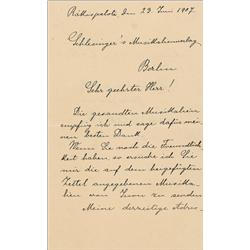 den 23. Juni 1907
Schlesinger's Musikalienverlag
Berlin
Sehr geehrter Herr!
Die gesandten Musikalien
empfing ich und sage dafür mei-
nen besten Dank.
Wenn Sie noch die Freundlich-
keit haben so ersuche ich Sie
mir die auf dem beigefügten
Zettel angegebenen Musika-
lien von zu senden
Meine derzeitige